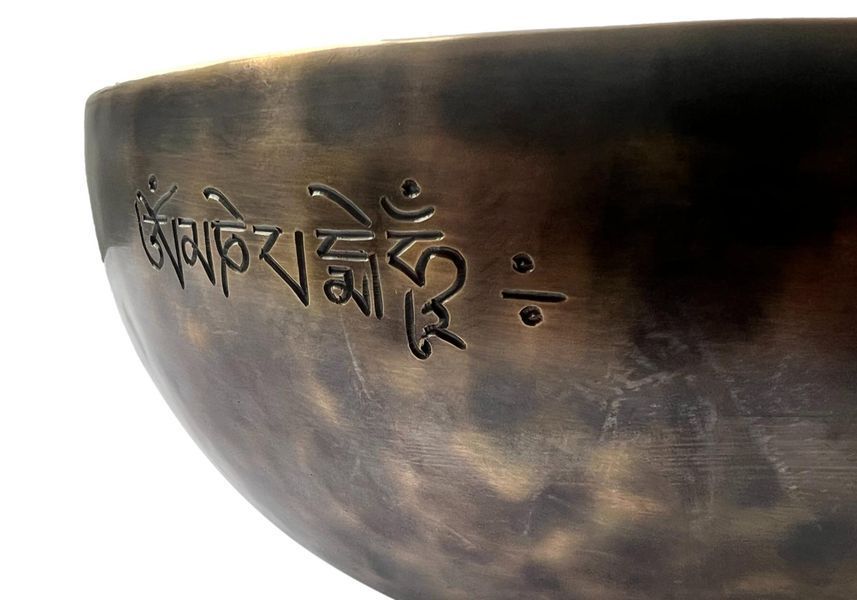 ཨོཾ མ ཎི པ དྨེ ཧཱུྃ ༔